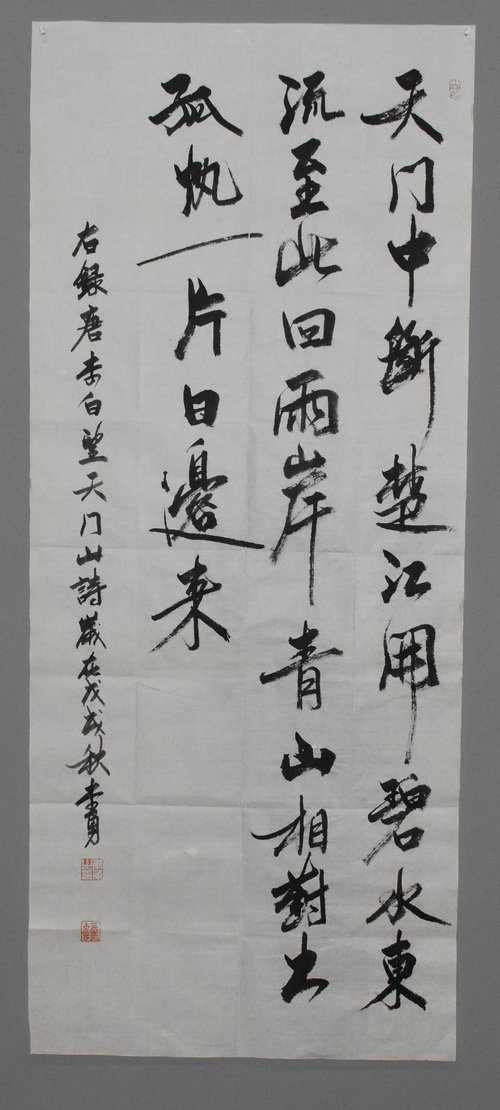 天门中斷楚江開碧水東
流至此回兩岸青山相對出
孤帆一片日邊来
右録唐李白望天门山詩歲在戊戌秋李勇